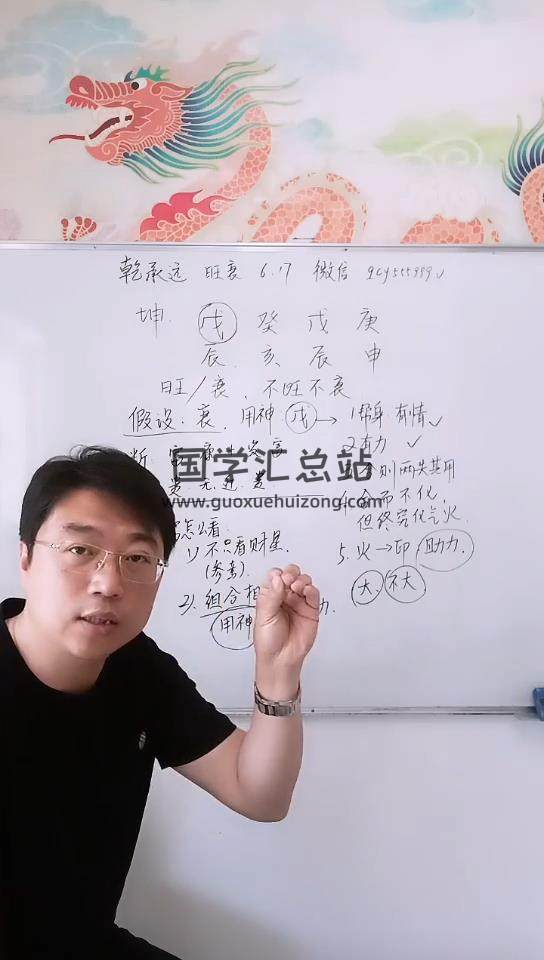 乾承远 旺衰 6.17 微信
坤. 戊 癸 戊 庚
辰 亥 辰 申
旺/衰, 不旺不衰
假设:衰, 用神 戊 → 1帮身 有情✓
2有力 ✓
则两失其用
合而不化,
但终究化气火.
怎么看
1) 不只看财星.
(参考).
5. 火→印 助力
大 不大
2). 组合
用神
国学汇总站
www.guoxuehuizong.com